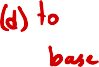 (d) to
base